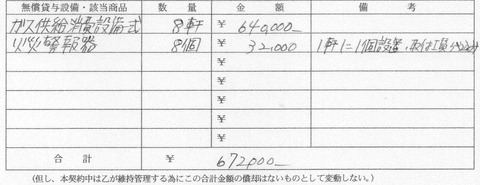 無償貸与設備・該当商品 数量 金額 備考
ガス供給消費設備一式 8軒 ¥ 640,000—
警報器 8個 ¥ 32,000 1軒に1個設置、取付工賃
¥
¥
¥
¥
¥
合計 ¥ 672,000—
(但し、本契約中は乙が維持管理する為にこの合計金額の償却はないものとして変動しない。)